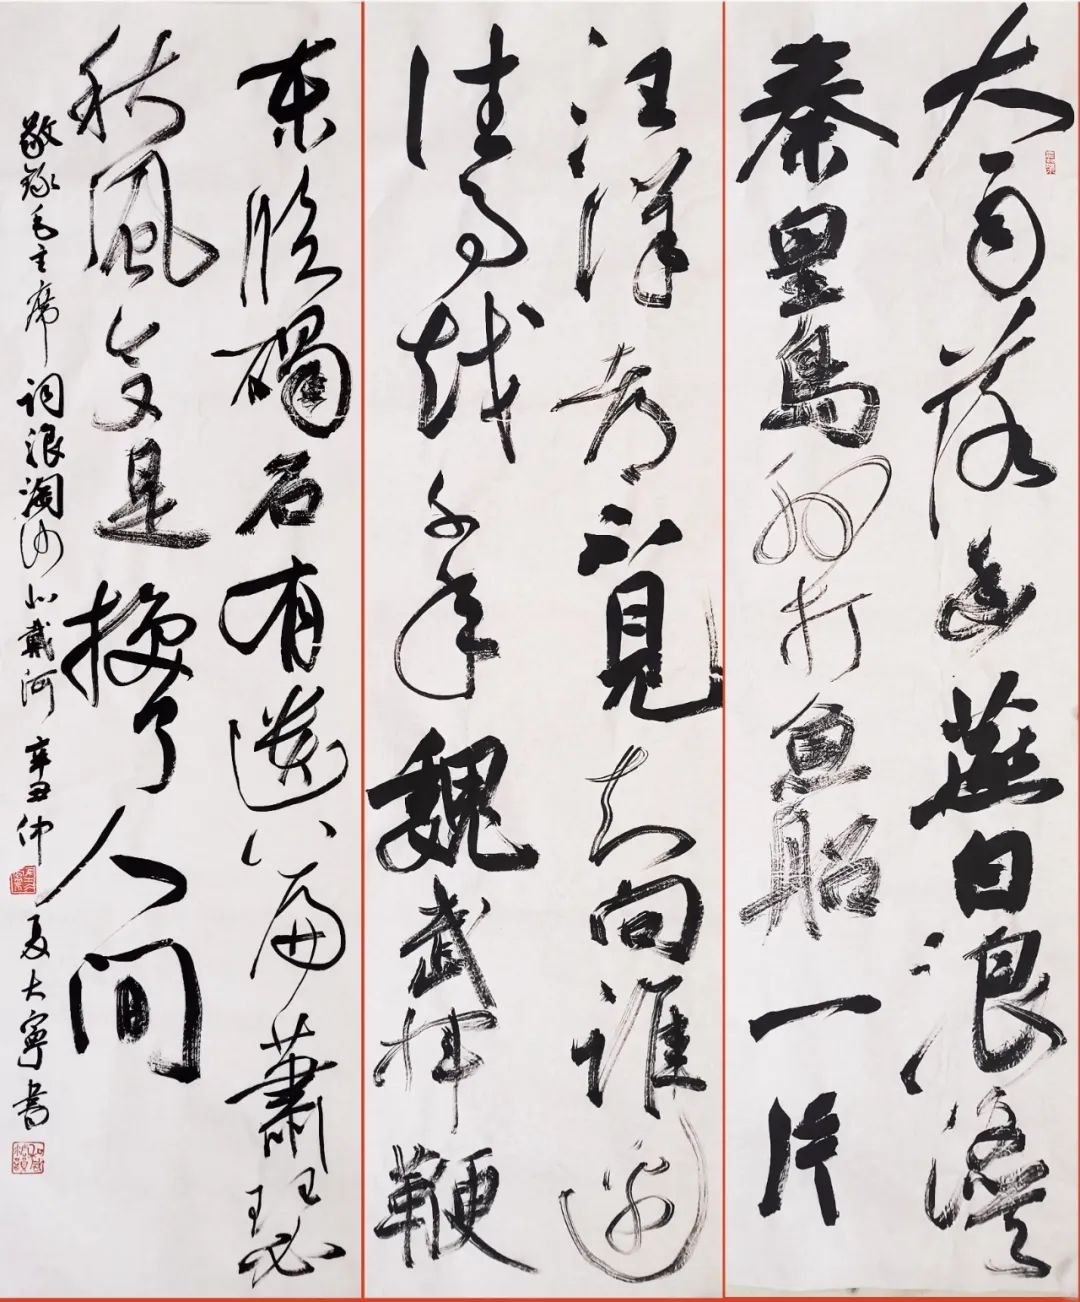 大雨落幽燕白浪滔天
秦皇島外打魚船一片
汪洋都不見知向誰邊
往事越千年魏武揮鞭
東臨碣石有遺篇蕭瑟
秋風今又是換了人間
敬錄毛主席詞浪淘沙北戴河 辛丑仲夏大寧書